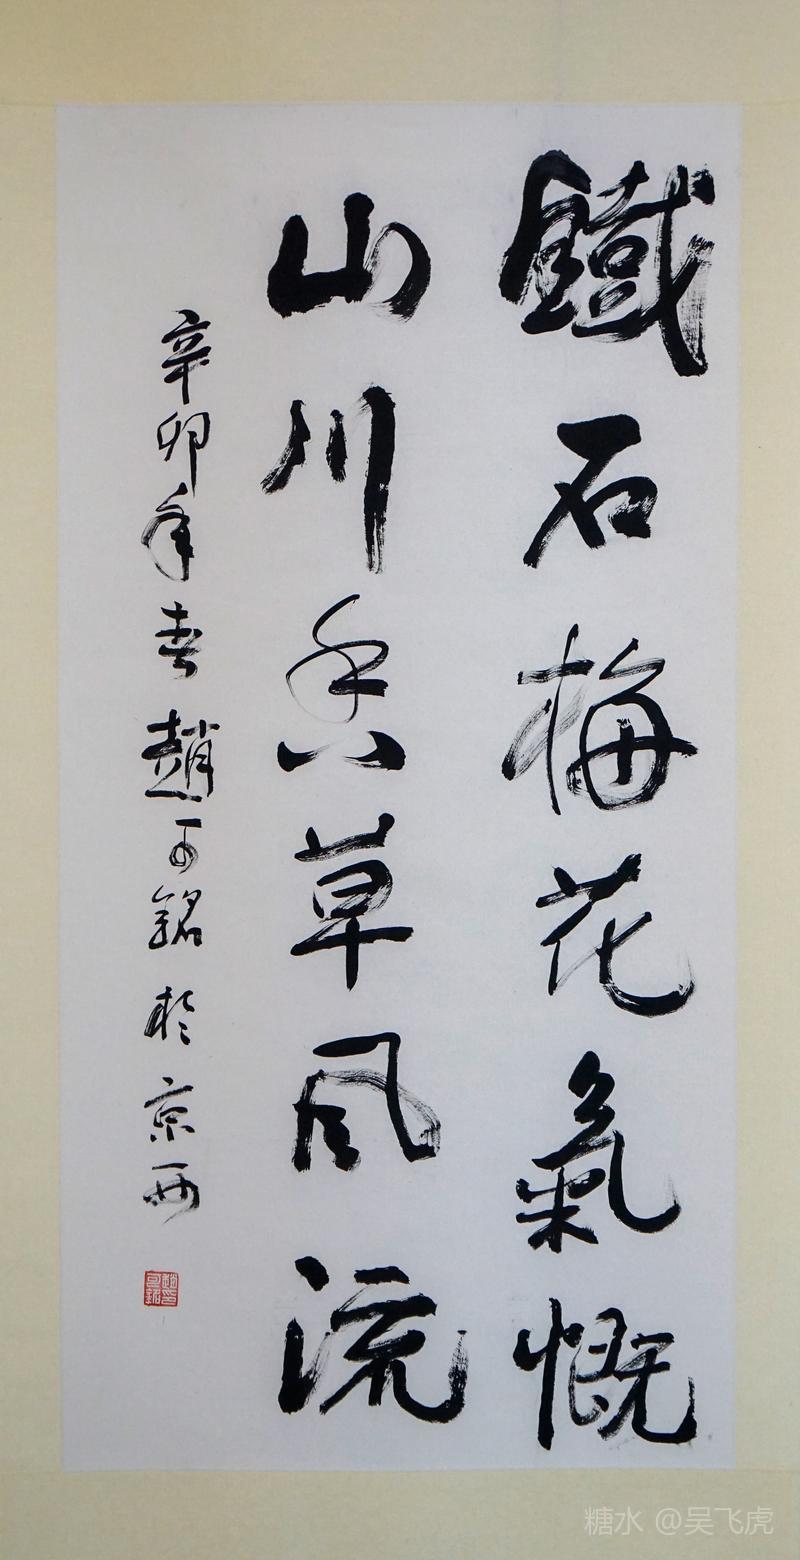 鐵石梅花氣慨
山川香草風流
辛卯年春趙可銘於京西
趙可銘印
糖水 @吴飞虎